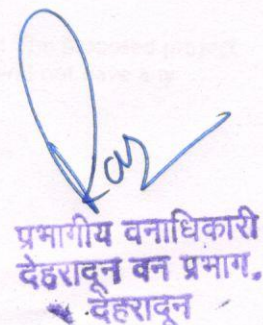 प्रभागीय वनाधिकारी
देहरादून वन प्रभाग,
देहरादून